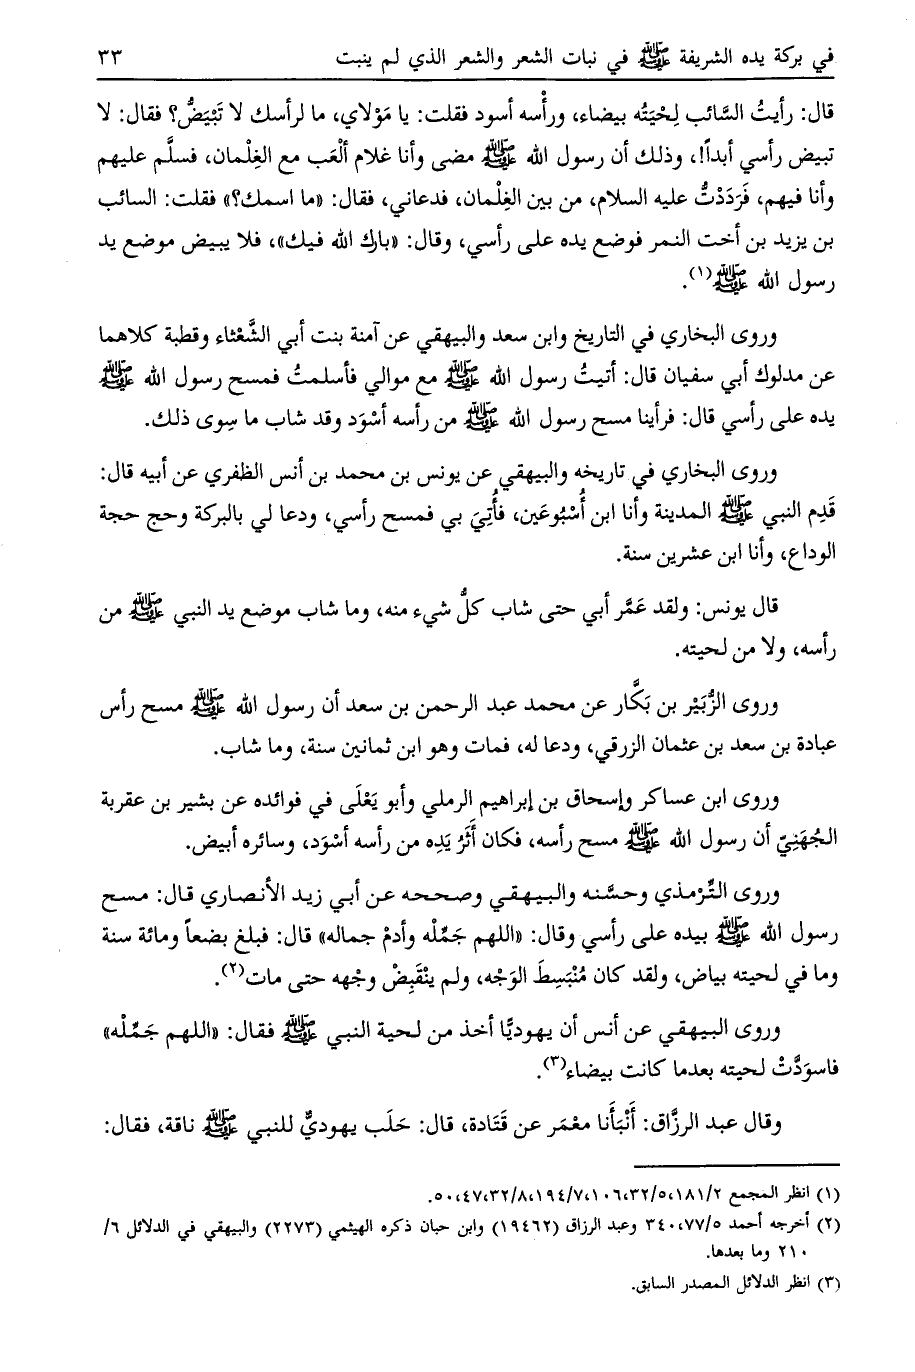 في بركة يده الشريفة ﷺ في نبات الشعر والشعر الذي لم ينبت ٣٣
قال: رأيتُ السَّائب لِحْيَتُه بيضاء، ورأْسه أسود فقلت: يا مَوْلاي، ما لرأسك لا تَبْيَضُّ؟ فقال: لا
تبيض رأسي أبداً!، وذلك أن رسول الله ﷺ مضى وأنا غلام ألْعَب مع الغِلْمان، فسلَّم عليهم
وأنا فيهم، فَرَدَدْتُّ عليه السلام، من بين الغِلْمان، فدعاني، فقال: «ما اسمك؟» فقلت: السائب
بن يزيد بن أخت النمر فوضع يده على رأسي، وقال: «بارك الله فيك»، فلا يبيض موضع يد
رسول الله ﷺ(١).
وروى البخاري في التاريخ وابن سعد والبيهقي عن آمنة بنت أبي الشَّعْثاء وقطبة كلاهما
عن مدلوك أبي سفيان قال: أتيتُ رسول الله ﷺ مع موالي فأسلمتُ فمسح رسول الله ﷺ
يده على رأسي قال: فرأينا مسح رسول الله ﷺ من رأسه أسْوَد وقد شاب ما سِوى ذلك.
وروى البخاري في تاريخه والبيهقي عن يونس بن محمد بن أنس الظفري عن أبيه قال:
قَدِم النبي ﷺ المدينة وأنا ابن أُسْبُوعَين، فأُتِيَ بي فمسح رأسي، ودعا لي بالبركة وحج حجة
الوداع، وأنا ابن عشرين سنة.
قال يونس: ولقد عَمَّر أبي حتى شاب كلُّ شيء منه، وما شاب موضع يد النبي ﷺ من
رأسه، ولا من لحيته.
وروى الزُّبَيْر بن بَكَّار عن محمد عبد الرحمن بن سعد أن رسول الله ﷺ مسح رأس
عبادة بن سعد بن عثمان الزرقي، ودعا له، فمات وهو ابن ثمانين سنة، وما شاب.
وروى ابن عساكر وإسحاق بن إبراهيم الرملي وأبو يَعْلَى في فوائده عن بشير بن عقربة
الجُهَنِيّ أن رسول الله ﷺ مسح رأسه، فكان أَثَرُ يَدِه من رأسه أسْوَد، وسائره أبيض.
وروى التِّرْمذي وحسَّنه والبيهقي وصححه عن أبي زيد الأنصاري قال: مسح
رسول الله ﷺ بيده على رأسي وقال: «اللهم جَمِّلْه وأدمْ جماله» قال: فبلغ بضعاً ومائة سنة
وما في لحيته بياض، ولقد كان مُنْبَسِطَ الوَجْه، ولم ينْقَبِضْ وجْهه حتى مات(٢).
وروى البيهقي عن أنس أن يهوديًّا أخذ من لحية النبي ﷺ فقال: «اللهم جَمِّلْه»
فاسوَدَّتْ لحيته بعدما كانت بيضاء(٣).
وقال عبد الرزَّاق: أَنْبَأَنا معْمَر عن قَتَادة، قال: حَلَب يهوديٌّ للنبي ﷺ ناقة، فقال:
(١) انظر المجمع ٢/١٨١،٥/٣٢،١٠٦،٧/١٩٤،٨/٣٢،٤٧،٥٠.
(٢) أخرجه أحمد ٥/٧٧،٣٤٠ وعبد الرزاق (١٩٤٦٢) وابن حبان ذكره الهيثمي (٢٢٧٣) والبيهقي في الدلائل ٦/
٢١٠ وما بعدها.
(٣) انظر الدلائل المصدر السابق.